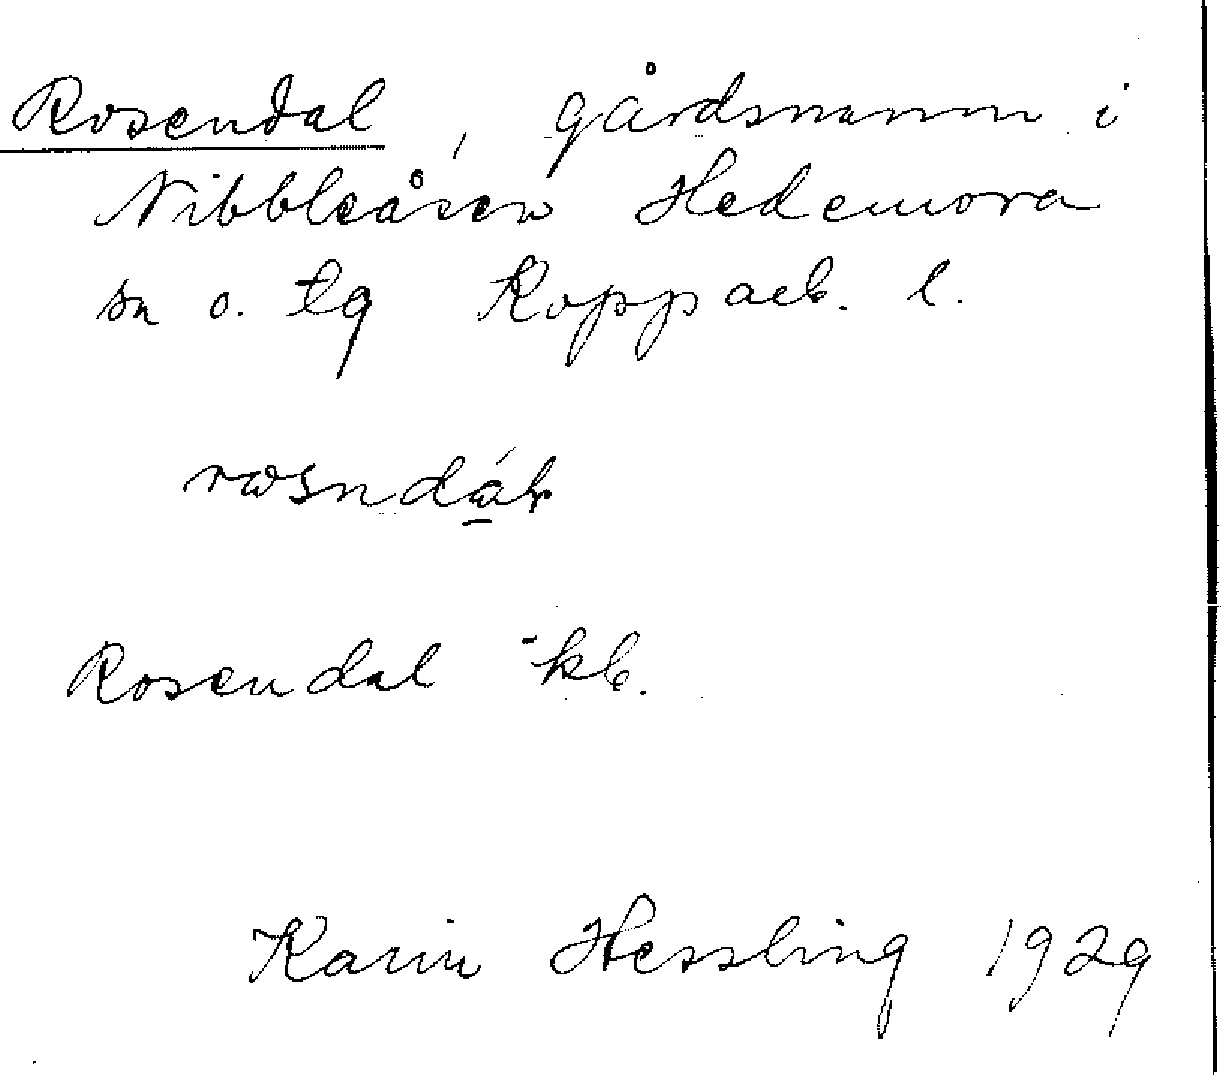 Rosendal, gårdsnamn i
Nibbleåsen Hedemora
sn o. tg Kopparb. l.
Rosendal - kb.
Karin Hessling 1929